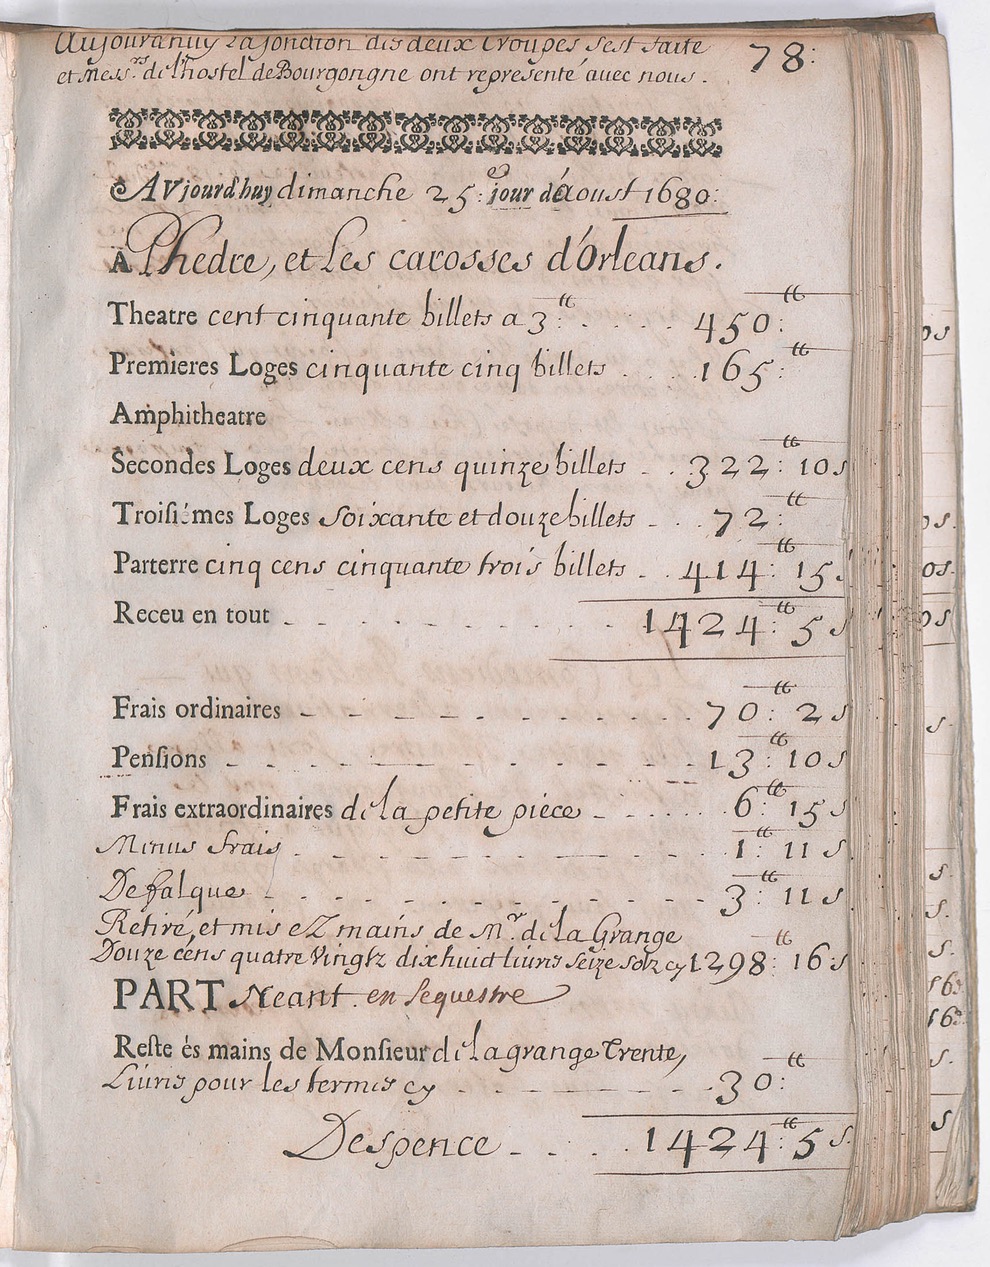 Aujourd'huy la Jonction des deux troupes s'est faite
et Mess.rs de l'hostel de Bourgongne ont representé avec nous.
78:
AVjourd'huy dimanche 25: jour d'aoust 1680:
A Phedre, et Les carosses d'Orleans.
Theatre cent cinquante billets a 3:tt . . . . . 450:tt
Premieres Loges cinquante cinq billets . . . 165:tt
Amphitheatre
Secondes Loges deux cens quinze billets . . . 322:tt 10 s
Troisiémes Loges Soixante et douze billets . . . 72:tt
Parterre cinq cens cinquante trois billets . . 414:tt 15 s
Receu en tout . . . . . . . . 1424:tt 5 s
Frais ordinaires . . . . . . . . 70:tt 2 s
Pensions . . . . . . . . . . 13:tt 10 s
Frais extraordinaires de la petite piéce . . . . . 6:tt 15 s
Minus frais . . . . . . . . . 1:tt 11 s
Defalque . . . . . . . . . . 3:tt 11 s
Retiré, et mis eZ mains de Mr. de la Grange
Douze cens quatre Vingtz dix huict Liures seize solz cy 1298:tt 16 s
PART Neant. en sequestre
Reste és mains de Monsieur de la grange Trente,
Liures pour les termes cy . . . . . 30:tt
Despence . . . . 1424:tt 5 s.